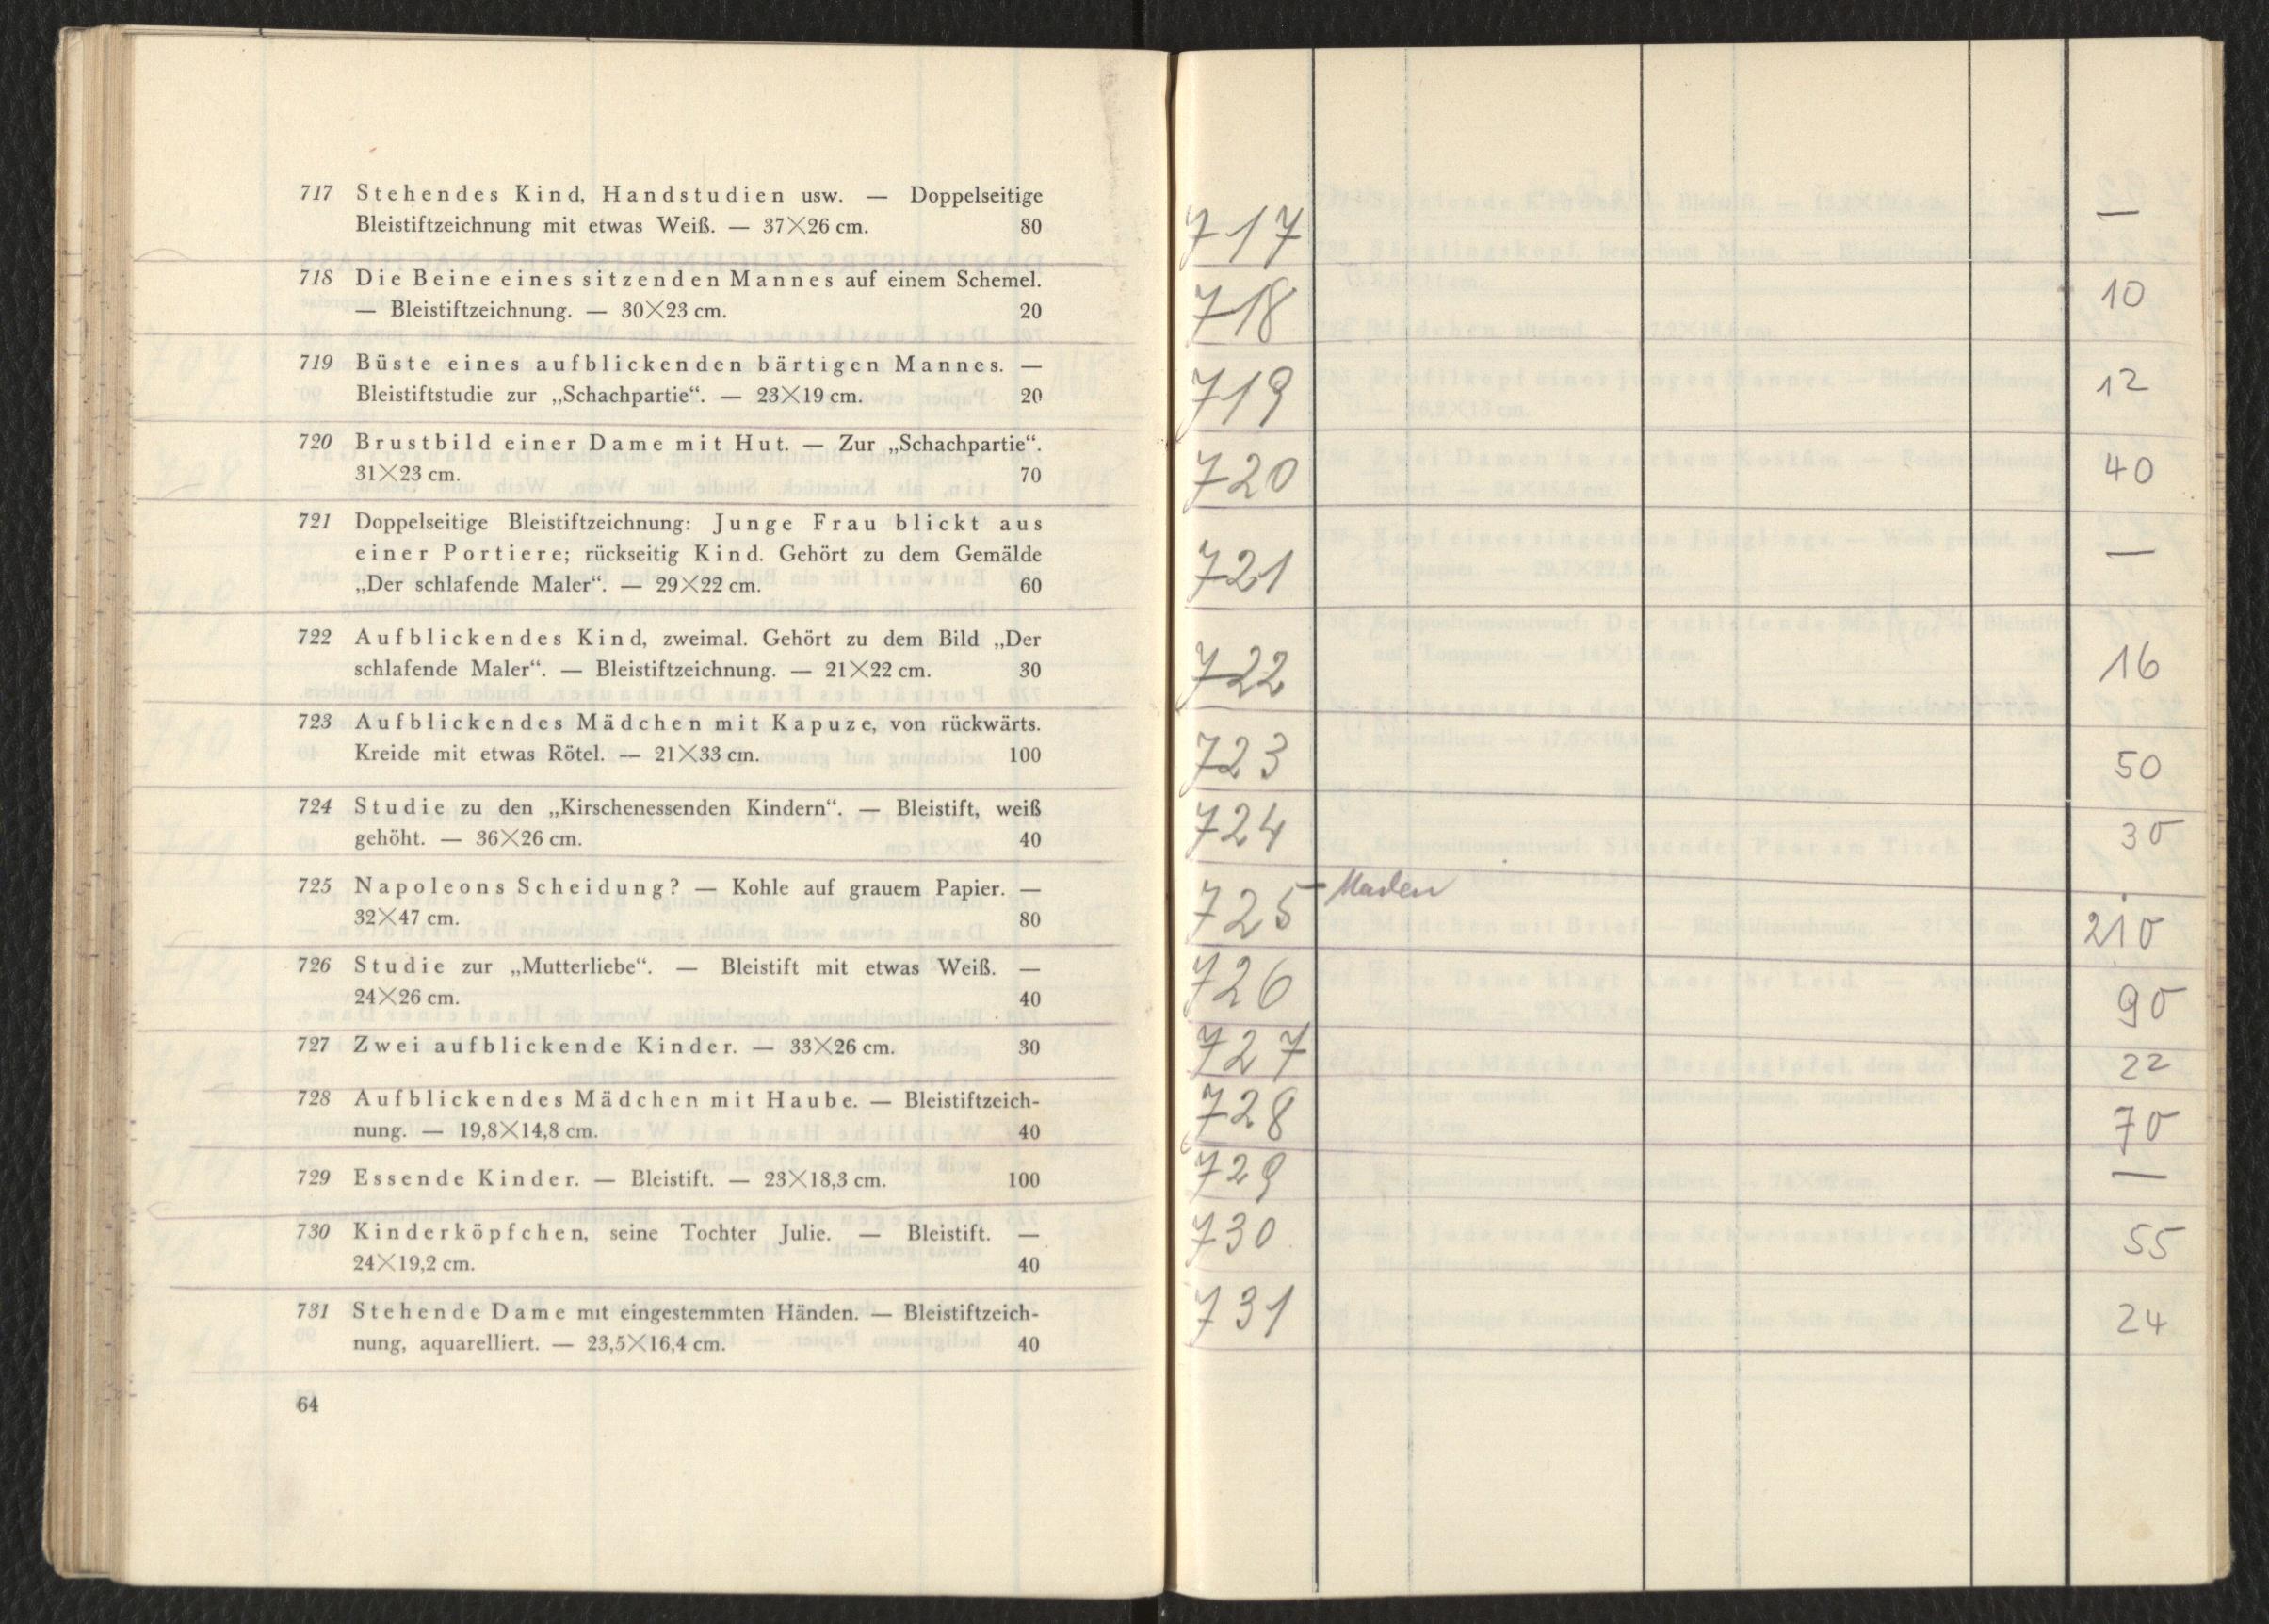 717 Stehendes Kind, Handstudien usw. — Doppelseitige
Bleistiftzeichnung mit etwas Weiß. — 37×26 cm. 80
718 Die Beine eines sitzenden Mannes auf einem Schemel.
— Bleistiftzeichnung. — 30×23 cm. 20
719 Büste eines aufblickenden bärtigen Mannes. —
Bleistiftstudie zur „Schachpartie“. — 23×19 cm. 20
720 Brustbild einer Dame mit Hut. — Zur „Schachpartie“.
31×23 cm. 70
721 Doppelseitige Bleistiftzeichnung: Junge Frau blickt aus
einer Portiere; rückseitig Kind. Gehört zu dem Gemälde
„Der schlafende Maler“. — 29×22 cm. 60
722 Aufblickendes Kind, zweimal. Gehört zu dem Bild „Der
schlafende Maler“. — Bleistiftzeichnung. — 21×22 cm. 30
723 Aufblickendes Mädchen mit Kapuze, von rückwärts.
Kreide mit etwas Rötel. — 21×33 cm. 100
724 Studie zu den „Kirschenessenden Kindern“. — Bleistift, weiß
gehöht. — 36×26 cm. 40
725 Napoleons Scheidung? — Kohle auf grauem Papier. —
32×47 cm. 80
726 Studie zur „Mutterliebe“. — Bleistift mit etwas Weiß. —
24×26 cm. 40
727 Zwei aufblickende Kinder. — 33×26 cm. 30
728 Aufblickendes Mädchen mit Haube. — Bleistiftzeich-
nung. — 19,8×14,8 cm. 40
729 Essende Kinder. — Bleistift. — 23×18,3 cm. 100
730 Kinderköpfchen, seine Tochter Julie. — Bleistift. —
24×19,2 cm. 40
731 Stehende Dame mit eingestemmten Händen. — Bleistiftzeich-
nung, aquarelliert. — 23,5×16,4 cm. 40
64
717 —
718 10
719 12
720 40
721 —
722 16
723 50
724 30
725 210
726 90
727 22
728 70
729 —
730 55
731 24